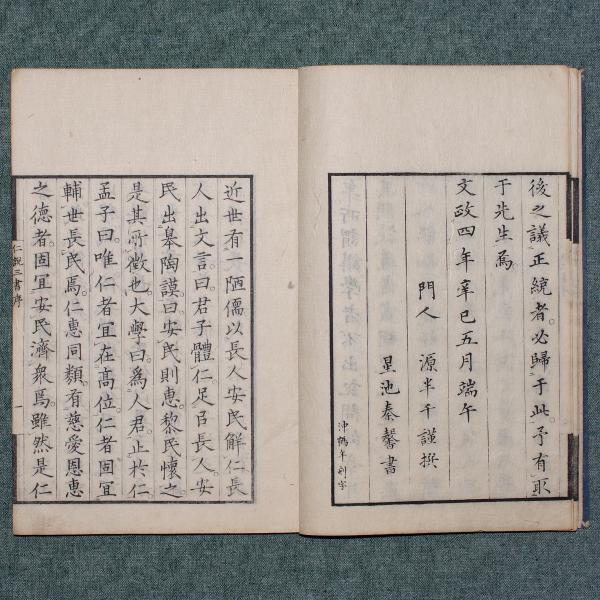 後之議正統者。必歸于此。予有取
于先生焉。
文政四年辛巳五月端午
門人 源半千謹撰
星池秦馨書
沖鶴年刻字
近世有一陋儒以長人安民解仁長
人出文言曰。君子體仁足㠯長人。安
民出皋陶謨。曰安民則惠。黎民懷之
是其所徵也。大學曰。為人君。止於仁
孟子曰。唯仁者宜在高位。仁者固宜
輔世長民焉。仁惠同類。有慈愛恩惠
之德者。固宜安民濟衆焉。雖然是仁
仁說三書序
一